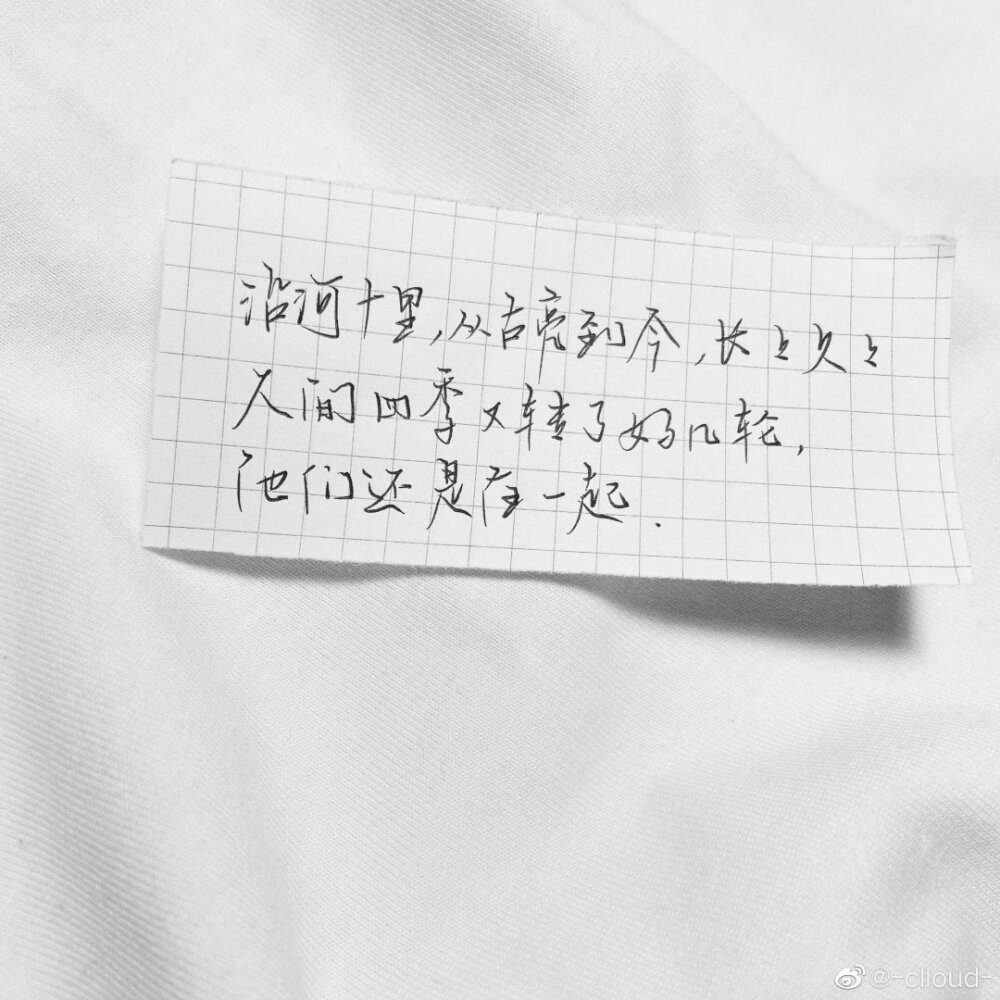 沿河十里,从古亮到今,长〻久〻
人间四季又转了好几轮,
他们还是在一起.
@-clloud-